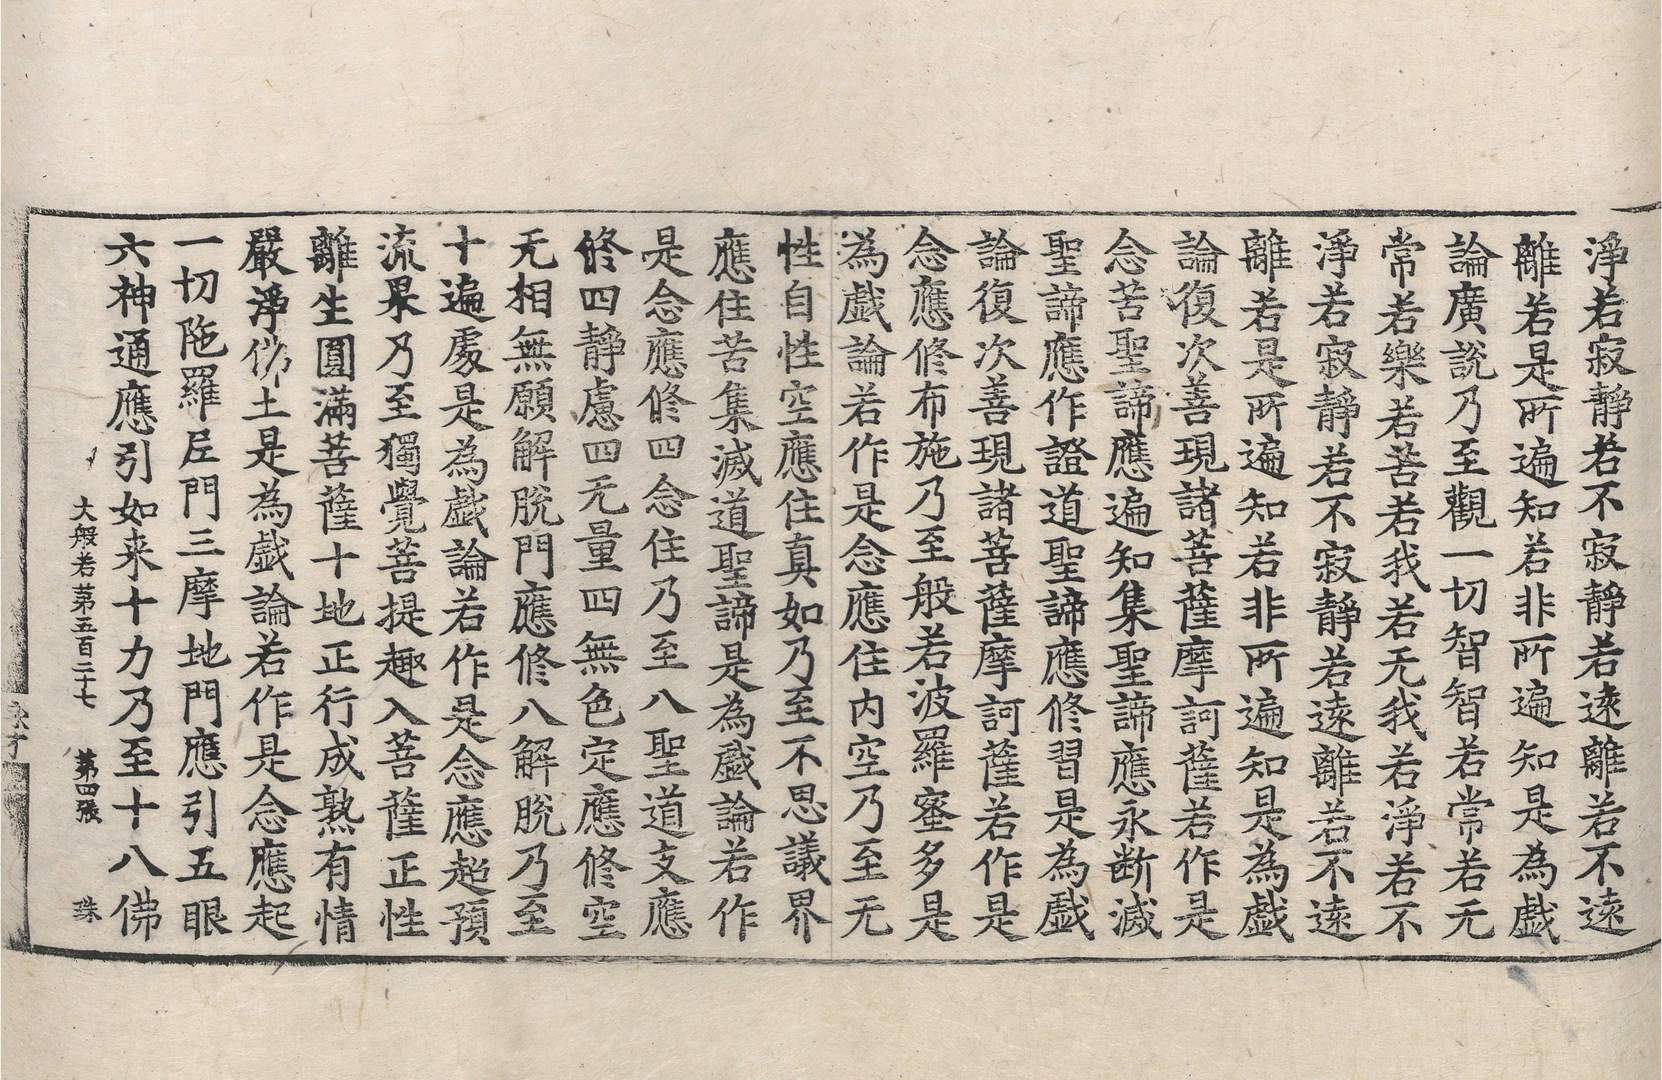 淨若寂靜若不寂靜若遠離若不遠
離若是所遍知若非所遍知是為戱
論廣說乃至觀一切智智若常若无
常若樂若苦若我若无我若淨若不
淨若寂靜若不寂靜若遠離若不遠
離若是所遍知若非所遍知是為戱
論復次善現諸菩薩摩訶薩若作是
念苦聖諦應遍知集聖諦應永断滅
聖諦應作證道聖諦應修習是為戱
論復次善現諸菩薩摩訶薩若作是
念應修布施乃至般若波羅蜜多是
為戱論若作是念應住内空乃至无
性自性空應住真如乃至不思議界
應住苦集滅道聖諦是為戱論若作
是念應修四念住乃至八聖道支應
修四靜慮四无量四無色定應修空
无相無願解脫門應修八解脫乃至
十遍處是為戱論若作是念應超預
流果乃至獨覺菩提趣入菩薩正性
離生圓滿菩薩十地正行成熟有情
嚴淨佛土是為戱論若作是念應起
一切陁羅尼門三摩地門應引五眼
六神通應引如来十力乃至十八佛
大般若第五百二十七 第四張 珠